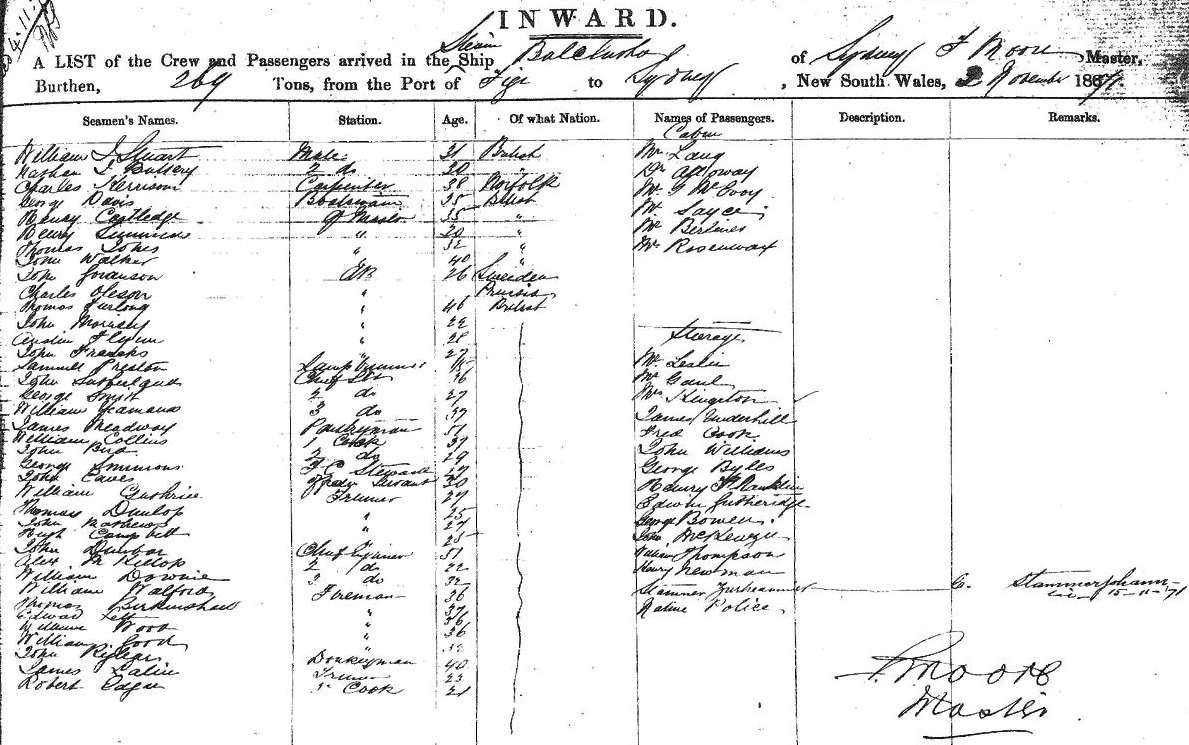 INWARD.
A LIST of the Crew and Passengers arrived in the Steam Ship Balclutha of Sydney F Moore Master,
Burthen, 269 Tons, from the Port of Figi to Sydney, New South Wales, 2 November 1871.
Seamen's Names. Station. Age. Of what Nation. Names of Passengers. Description. Remarks.
Cabin
William J Stuart Mate 31 British Mr Lang
Nathan J Buttery 2 do 30 " Dr Alloway
Charles Kerrison Carpenter 38 Norfolk Mr G McEvoy
George Davis Boatswain 25 British Mr Sayce
Henry Castledge Qr Master 35 " Mr Berliner
Henry " 20 " Mr Rosenwax
Thomas Jones " 32 "
John Walker " 40 "
John Joranson AB 26 Sweiden
Charles Oleson " Prussia
Thomas Furlong " 46 British
John " 22
Austin Flynn " 28 Steerage
John Franks " 27
Samuel Preston Lamp trimmer 18 Mr Leslie
John Sutherland Chief Std 36 Mr Gaul
George Smith 2 do 27 Mrs Kingston
William Yeamans 3 do 37 James Underhill
James Meadway Pantryman 51 Fred Cook
William Collins 1 Cook 37 John Williams
John Bird 2 do 29 George Byles
George Simmons F C Steward 27 Henry Franklin
John Eaves Servant 30 Edwin Gutheridge
William Guthrice Trimer 27 George Bowen
Thomas Dunlop " 25 John McKenzie
John Mathews " 27 William Thompson
Hugh Campbell " 25 Henry Newman
John Dunbar Chief Enginer 51
Alex McKillop 2 do 22
William Downie 3 do 32 Stammer C. Stammerjohann
William Walford Fireman 36 Native Police 15-11-71
Thomas Birkenshaw " 37
Edward " 36
William Wood " 36
William Good " 32
John
James Donkeyman 40
Robert Trimer 23
Sr Cook 21
F. Moore
Master